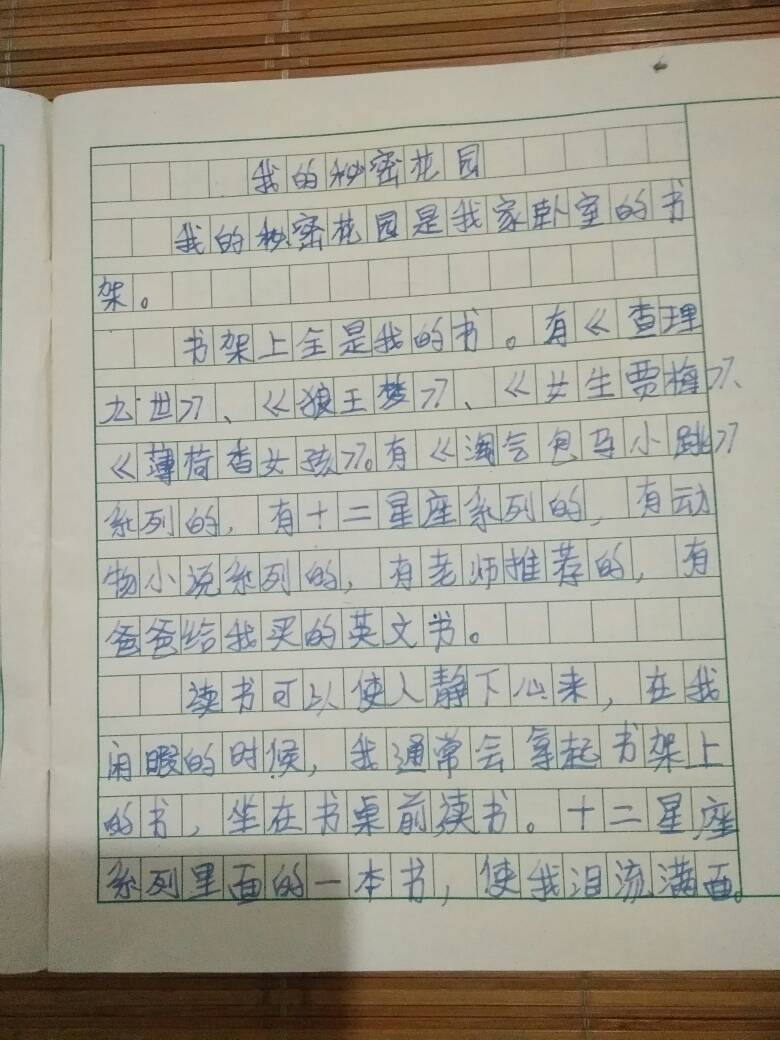 我的秘密花园
我的秘密花园是我家卧室的书
架。
书架上全是我的书。有《查理
九世》、《狼王梦》、《女生贾梅》、
《薄荷香女孩》。有《淘气包马小跳》
系列的，有十二星座系列的，有动
物小说系列的，有老师推荐的，有
爸爸给我买的英文书。
读书可以使人静下心来，在我
闲暇的时候，我通常会拿起书架上
的书，坐在书桌前读书。十二星座
系列里面的一本书，使我泪流满面。